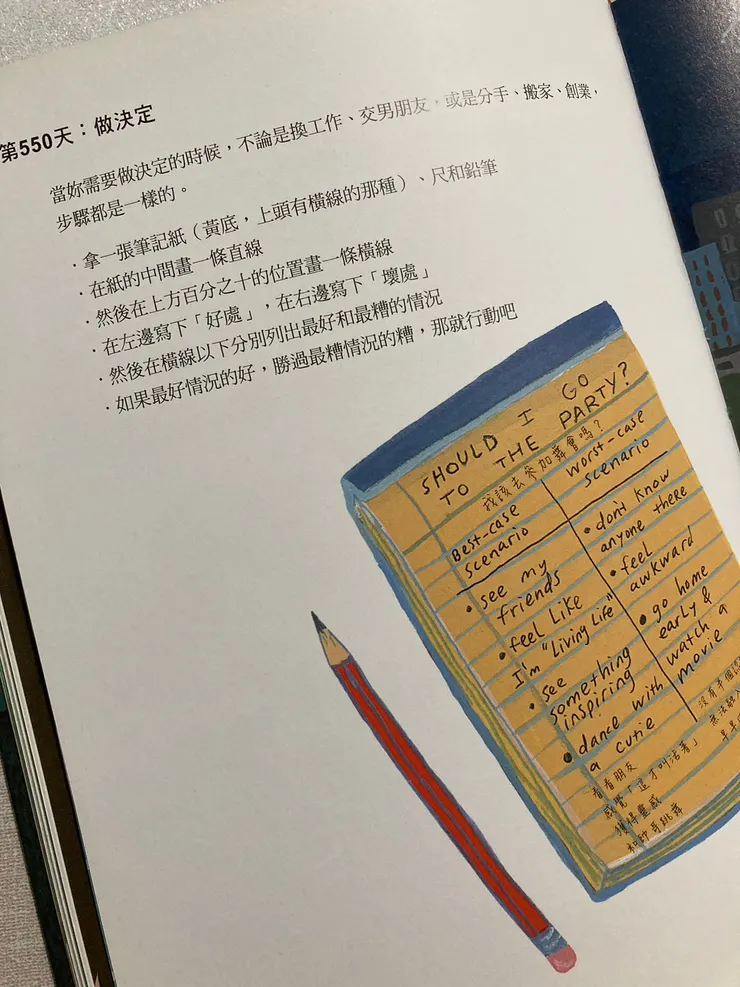 第550天：做決定
當妳需要做決定的時候，不論是換工作、交男朋友，或是分手、搬家、創業，
步驟都是一樣的。
．拿一張筆記紙（黃底，上頭有橫線的那種）、尺和鉛筆
．在紙的中間畫一條直線
．然後在上方百分之十的位置畫一條橫線
．在左邊寫下「好處」，在右邊寫下「壞處」
．然後在橫線以下分別列出最好和最糟的情況
．如果最好情況的好，勝過最糟情況的糟，那就行動吧
SHOULD I GO
TO THE PARTY?
我該去參加舞會嗎？
Best-case
scenario
• see my
friends
• feel Like
I'm "Living Life"
• see
something
inspiring
• dance with
a cutie
worst-case
scenario
• don't know
anyone there
• feel
awkward
• go home
early &
watch a
movie
看看朋友
感覺「這才叫活著」
獲得靈感
和帥哥跳舞
沒有半個認
無法融入
早早